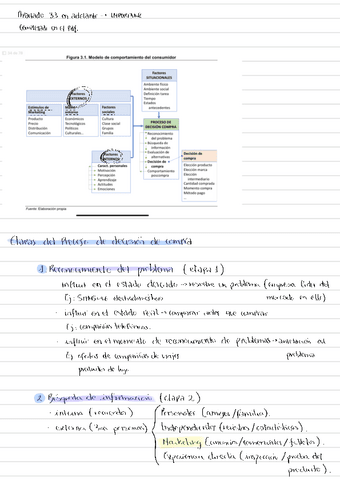 Apartado 3.3 en adelante → IMPORTANTE
Figura 3.1. Modelo de comportamiento del consumidor
Factores
SITUACIONALES
Ambiente físico
Ambiente social
Definición tarea
Tiempo
Estados
antecedentes
Factores
EXTERNOS
Estímulos de
Marketing
Producto
Precio
Distribución
Comunicación
Factores
Económicos
Tecnológicos
Políticos
Culturales...
Factores
sociales
Cultura
Clase social
Grupos
Familia
PROCESO DE
DECISIÓN COMPRA
Reconocimiento
del problema
Búsqueda de
información
Evaluación de
alternativas
Decisión de
compra
Comportamiento
poscompra
Factores
INTERNOS
Caract. personales
Motivación
Percepción
Aprendizaje
Actitudes
Emociones
Decisión de
compra
Elección producto
Elección marca
Elección
intermediario
Cantidad comprada
Momento compra
Método pago
...
Fuente: Elaboración propia
Etapas del Proceso de decisión de compra
1 Reconocimiento del problema (etapa 1)
influir en el estado deseado → mostrar un problema
Ej: Sensores electrodomésticos
· influir en el estado real → comparar
Ej: compañías telefónicas.
· influir en el momento de reconocimiento de problemas → anticiparse al problema
Ej ofertas de compañías de viajes
productos de
2 Búsqueda de información (etapa 2)
· interna (recuerdo)
· externa
Personales (amigos/familia).
Independientes (revistas/estadísticas).
Marketing (anuncios/comerciales/folletos).
Experiencia directa (inspección/prueba del
producto).